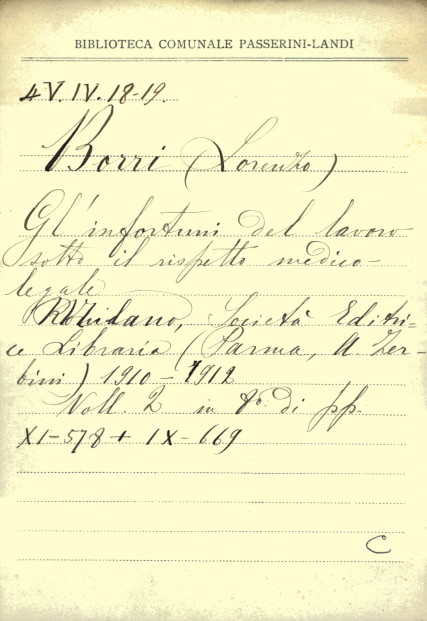 BIBLIOTECA COMUNALE PASSERINI-LANDI
4V.IV.18-19.
Borri (Lorenzo)
Gl'infortuni del lavoro
sotto il rispetto medico-
legale
Milano, Società Editri=
ce Libraria (Parma, A. Zer-
bini) 1910-1912
Voll. 2 in 8° di pp.
XI-578+IX-669
C